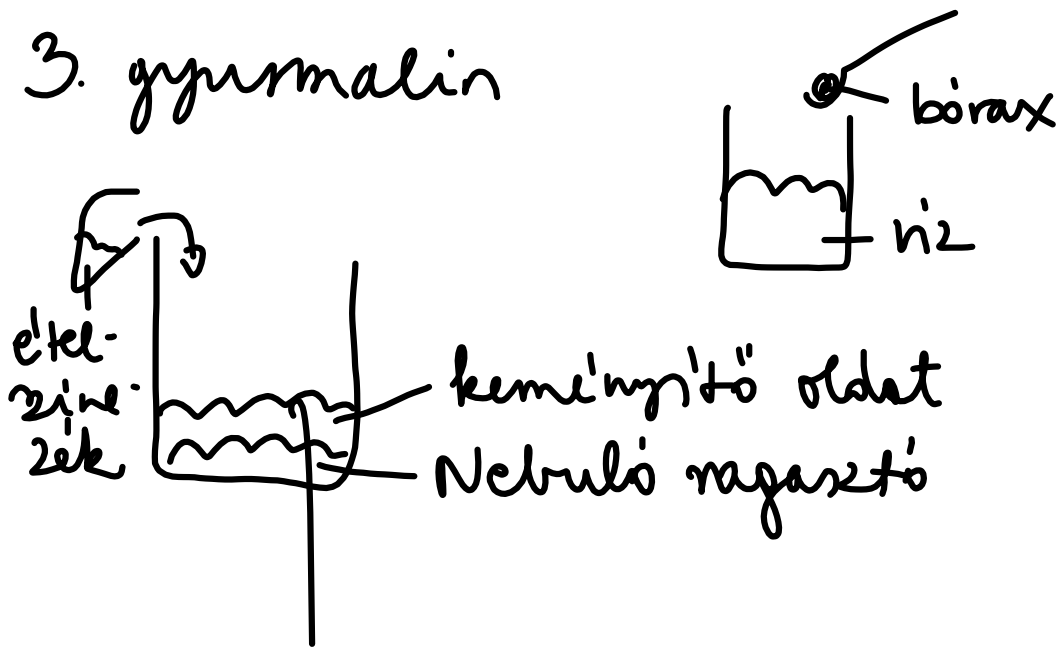 3. gyurmalin
bórax
víz
étel-
szine-
zék
keményítő oldat
Nebuló ragasztó